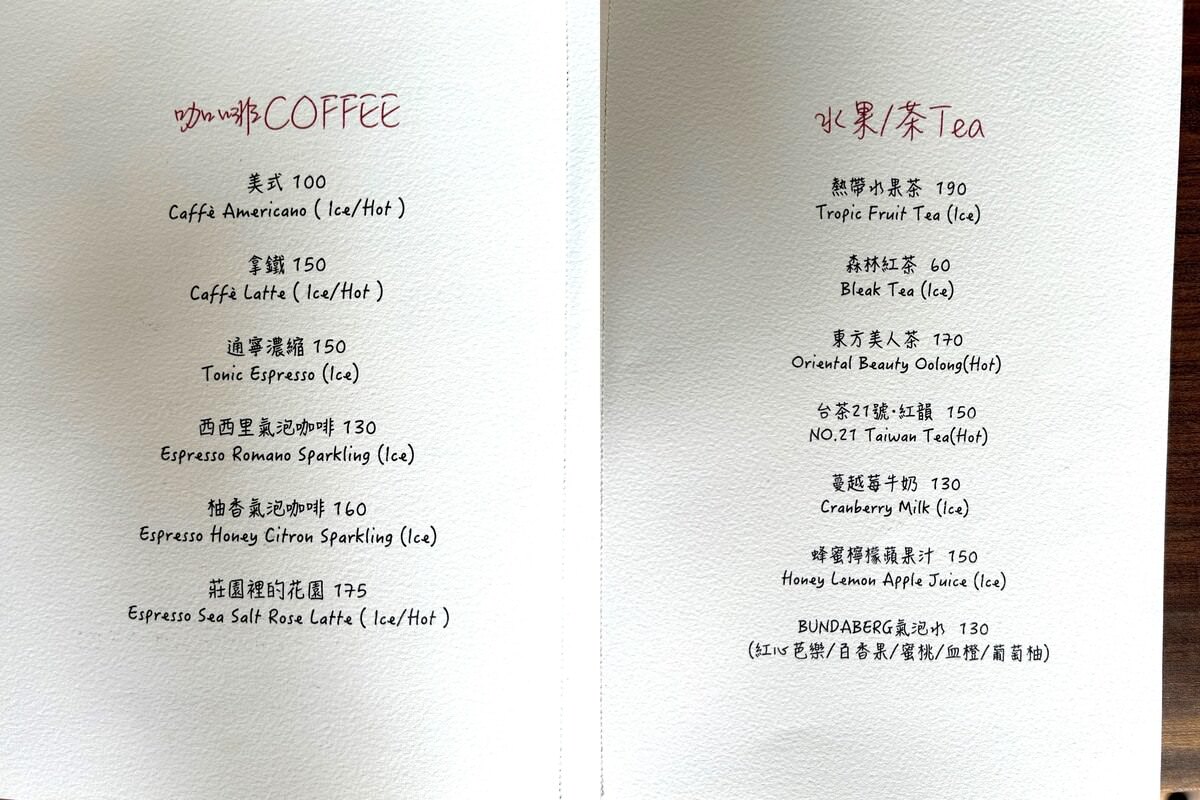 咖啡COFFEE
美式 100
Caffè Americano ( Ice/Hot )
拿鐵 150
Caffè Latte ( Ice/Hot )
通寧濃縮 150
Tonic Espresso (Ice)
西西里氣泡咖啡 130
Espresso Romano Sparkling (Ice)
柚香氣泡咖啡 160
Espresso Honey Citron Sparkling (Ice)
莊園裡的花園 175
Espresso Sea Salt Rose Latte ( Ice/Hot )
水果/茶Tea
熱帶水果茶 190
Tropic Fruit Tea (Ice)
森林紅茶 60
Bleak Tea (Ice)
東方美人茶 170
Oriental Beauty Oolong(Hot)
台茶21號·紅韻 150
NO.21 Taiwan Tea(Hot)
蔓越莓牛奶 130
Cranberry Milk (Ice)
蜂蜜檸檬蘋果汁 150
Honey Lemon Apple Juice (Ice)
BUNDABERG氣泡水 130
(紅心芭樂/百香果/蜜桃/血橙/葡萄柚)